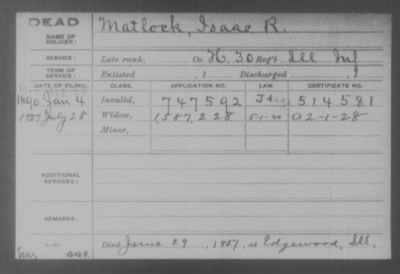 DEAD
NAME OF SOLDIER:
Matlock, Isaac R.
SERVICE:
Late rank, Co. H, 30 Reg't Ill Inf
TERM OF SERVICE:
Enlisted , 1 Discharged , 1
DATE OF FILING. CLASS. APPLICATION NO. LAW. CERTIFICATE NO.
1890 Jan 4 Invalid, 747592 514581
1927 July 28 Widow, 1,587,228 5-1-20 a2-1-28
Minor,
ADDITIONAL SERVICES:
REMARKS:
Died June 29, 1927, at Edgewood, Ill.